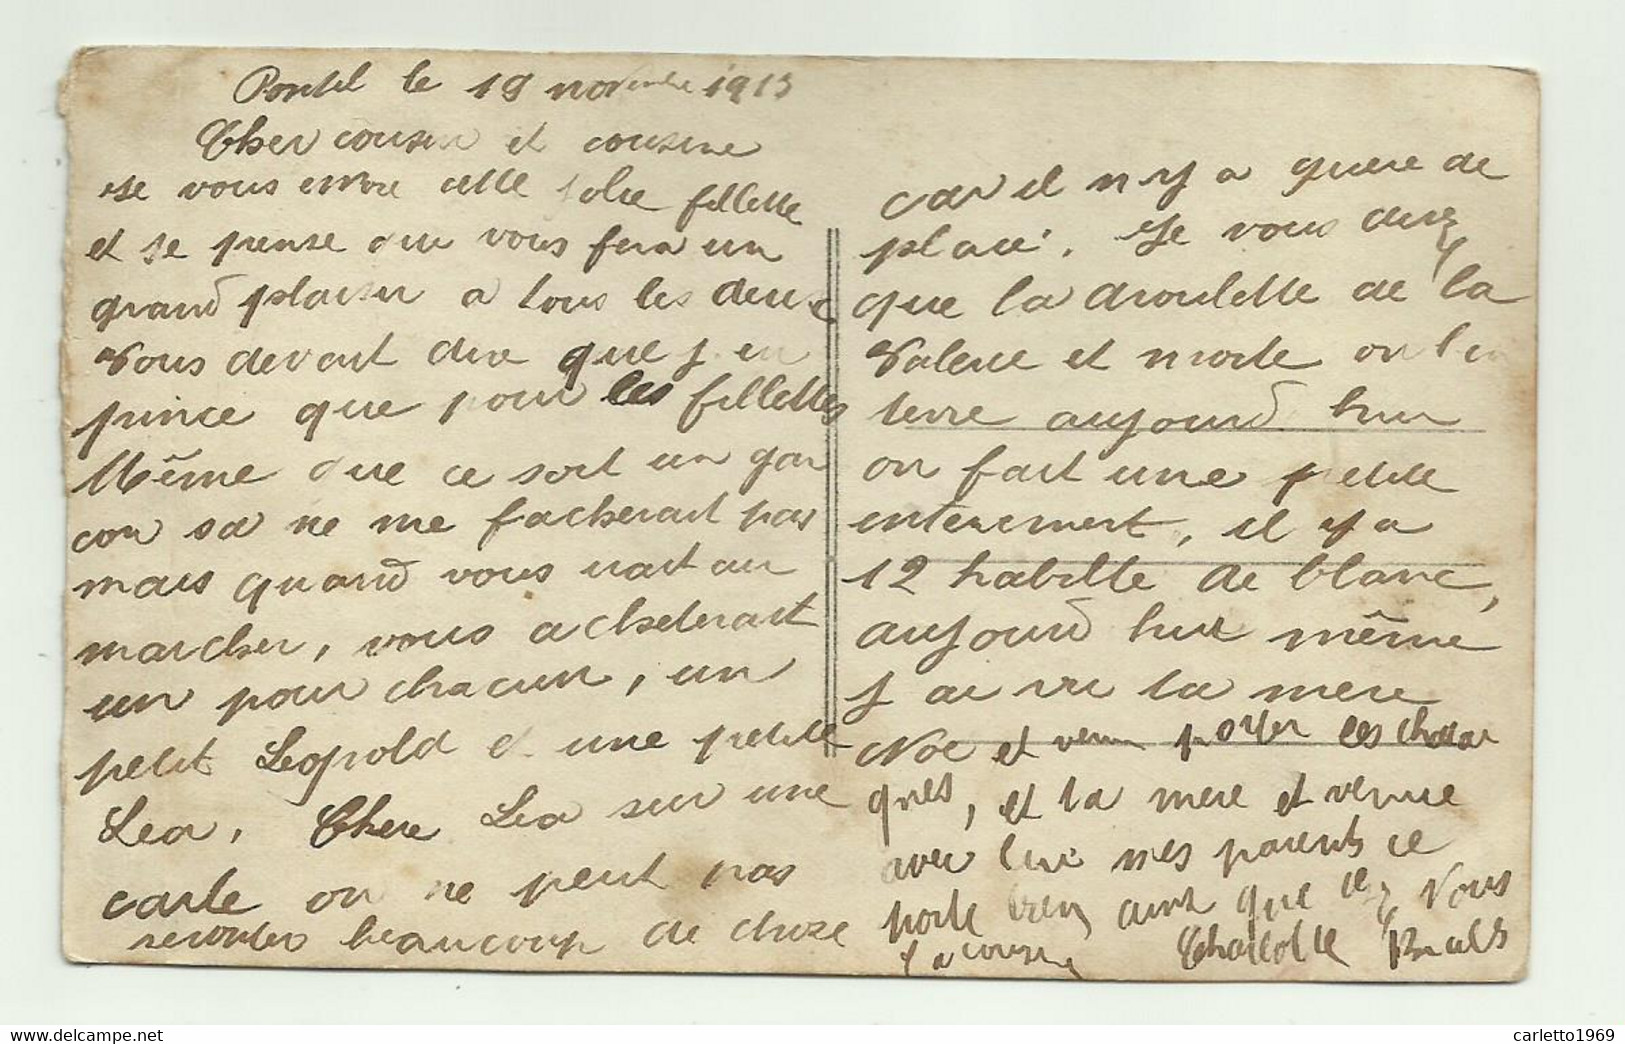 le 19 novembre 1913
Cher cousin et cousine
Je vous envoie cette jolie fillette
et je pense que vous fera un
grand plaisir a tous les deux
vous devait dire que j en
pince que pour les fillettes
Même que ce soit un gar
con sa ne me facherait pas
mais quand vous irait au
marcher, vous acheterait
un pour chacun, un
petit Leopold et une petite
Lea, Chere Lea sur une
carte on ne peut pas
beaucoup de choze
car il n y a guere de
place. Je vous direz
que la droulette de la
Valerie et morte on l en
terre aujourd hui
on fait une petite
enterement, il y a
12 habille de blanc,
aujourd hui même
j ai vu la mere
Noe et venu payer les
ques, et la mere et venue
avec lui mes parents ce
porte bien ainsi que chez Vous
la cousine Charlotte
carletto1969
delcampe.net